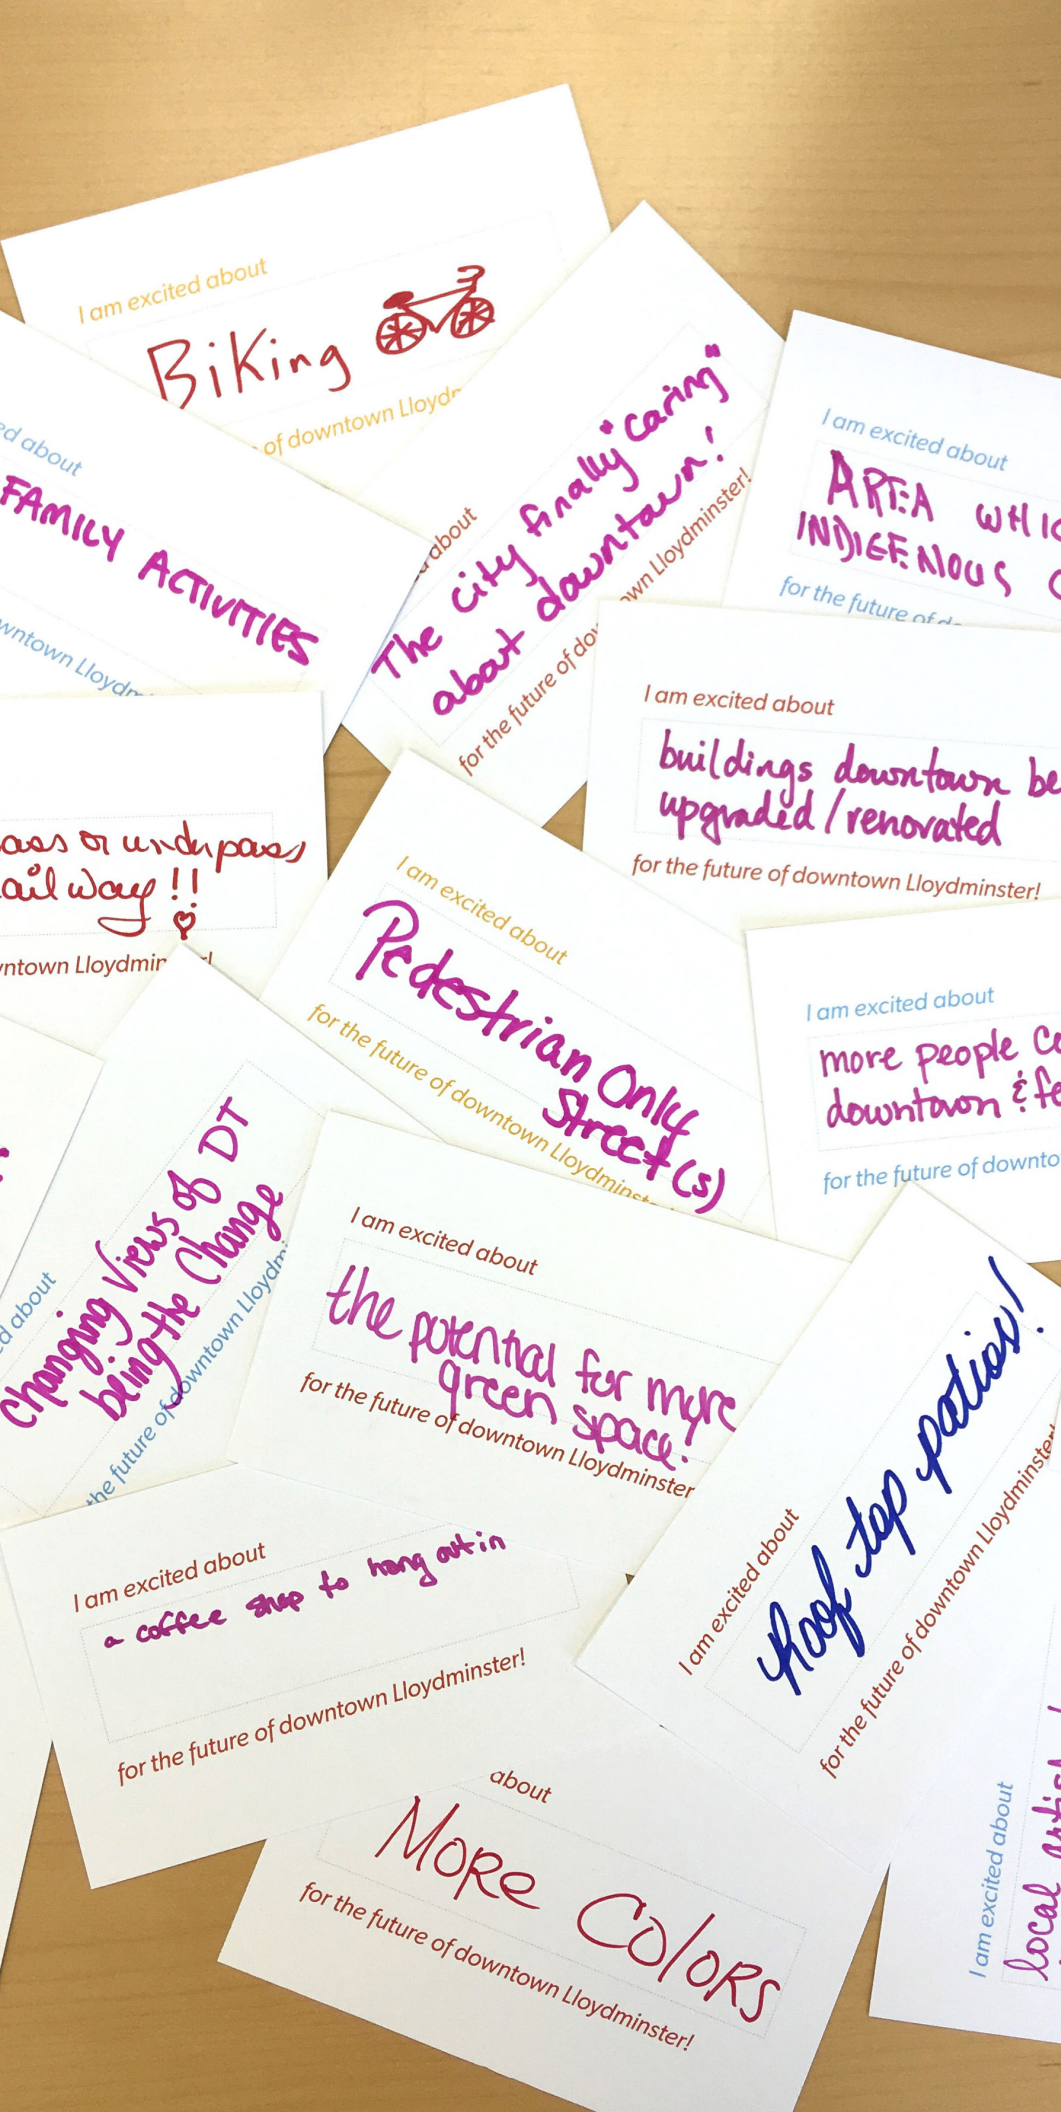 I am excited about
Biking
of downtown
about
FAMILY ACTIVITIES
about
The city finally "caring"
about downtown!
for the future of downtown Lloydminster!
I am excited about
AREA
INDIGENOUS
for the future of
I am excited about
buildings downtown
upgraded/renovated
for the future of downtown Lloydminster!
or underpass
!!
I am excited about
Pedestrian Only
Street(s)
for the future of downtown
I am excited about
more people
downtown &
for the future of
about
Changing Views of DT
being the Change
the future of downtown
I am excited about
the potential for more
green space!
for the future of downtown Lloydminster
I am excited about
Roof top patios!
for the future of downtown Lloydminster
I am excited about
a coffee shop to hang out in
for the future of downtown Lloydminster!
about
MORE COLORS
for the future of downtown Lloydminster!
I am excited about
local